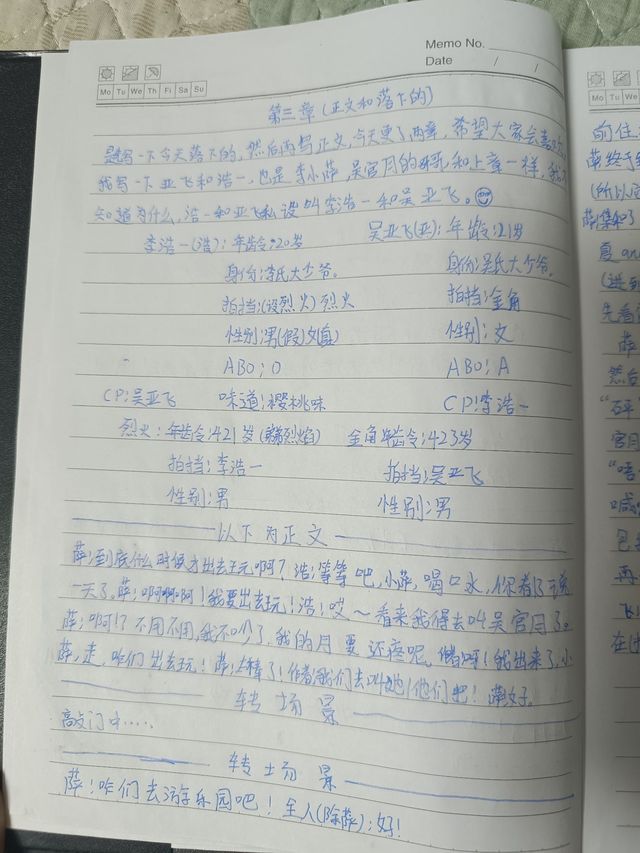 Memo No.
Date / /
Mo Tu We Th Fi Sa Su
第三章(正文和落下的)
是写一下今天落下的,然后再写正文,今天更了两章,希望大家会喜欢
我写一下亚飞和浩一,也是李小萨,吴官月的哥哥和上章一样,我不
知道为什么,浩一和亚飞私设叫李浩一和吴亚飞。
李浩一(浩):年龄:20岁 吴亚飞(亚):年龄:21岁
身份:李氏大少爷。 身份:吴氏大少爷。
拍挡:(设烈火)烈火 拍挡:金角
性别:男(假)女(真) 性别:女
ABO:O ABO:A
CP:吴亚飞 味道:樱桃味 CP:李浩一
烈火:年龄:421岁 金角年龄:423岁
拍挡:李浩一 拍挡:吴亚飞
性别:男 性别:男
以下为正文
萨:到底什么时候才出去玩啊?浩:等等吧,小萨,喝口水,你都
一天了。萨:啊啊啊!我要出去玩!浩:哎~看来我得去叫吴官月了。
萨:啊!?不用不用,我不吵了,我的月要还疼呢,作者:呀!我出来了,小
萨,走,咱们出去玩!萨:太棒了!作者:我们去叫他们吧!萨:好。
转场景
敲门中……
转场景
萨:咱们去游乐园吧!全人(除萨):好!